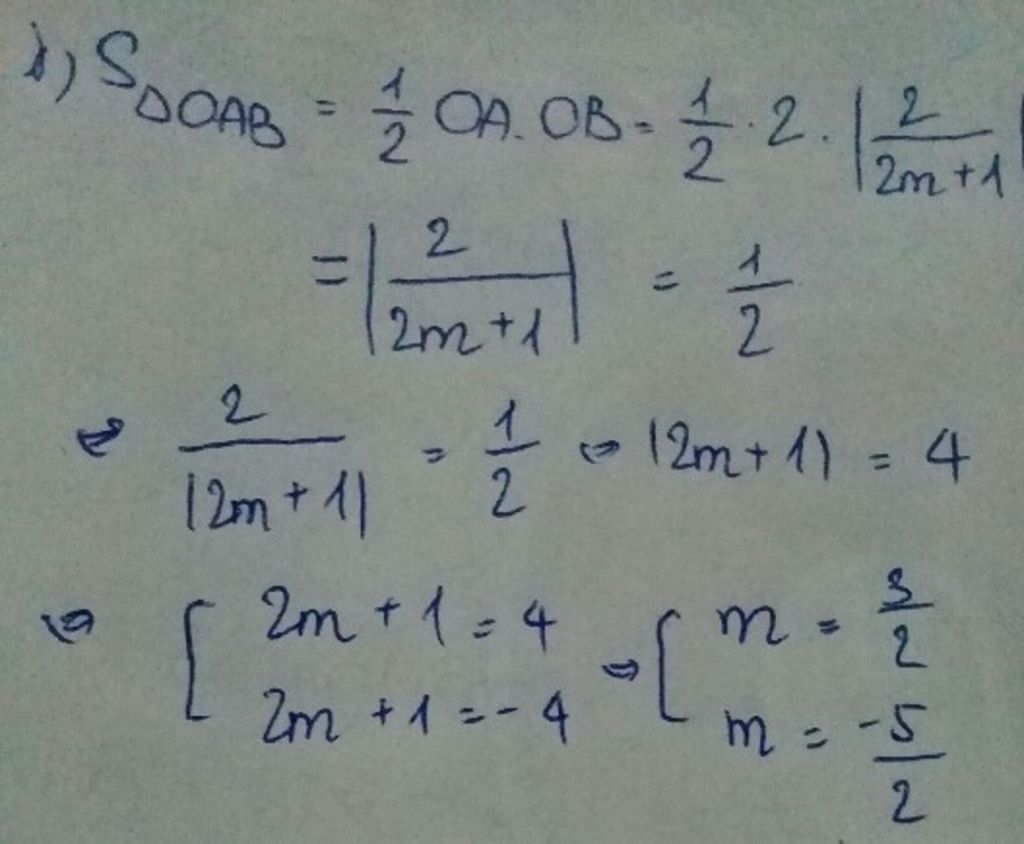 i) S△OAB = 1/2 OA.OB = 1/2 . 2 . |2/(2m+1)|
= |2/(2m+1)| = 1/2
⇔ 2/|2m+1| = 1/2 ⇔ |2m+1| = 4
⇔ [ 2m+1=4 ; 2m+1=-4 ⇔ [ m = 3/2 ; m = -5/2